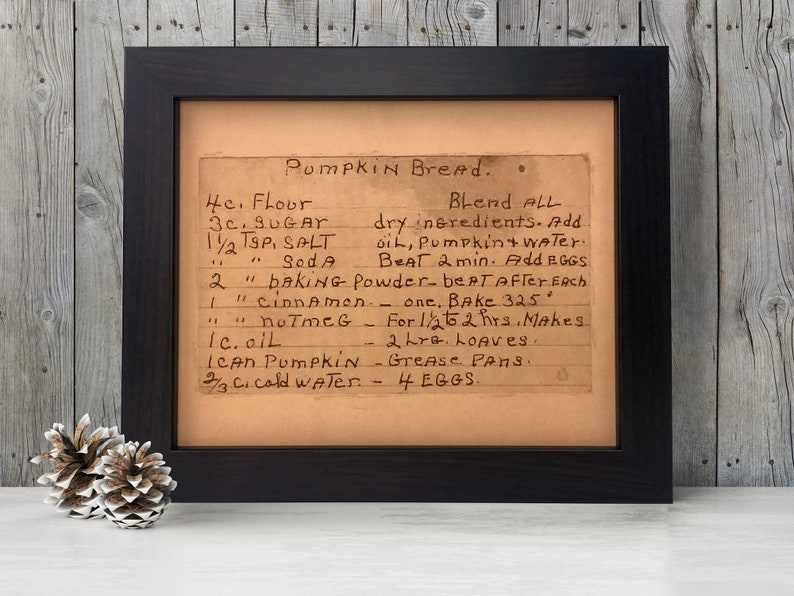 Pumpkin Bread.
4 c. Flour Blend ALL
3 c. SUGAR dry ingredients. Add
1 1/2 Tsp. SALT oil, Pumpkin + WATER.
" " SodA BeAT 2 min. Add EGGS
2 " bAKING Powder - beAT AFTer EAch
1 " cinnAmon - one. BAKe 325°
" " nuTmeG - For 1 1/2 to 2 hrs. MAKes
1 c. oil - 2 Lrg. LoAves.
1 cAn PumPKIN - GreAse PAns.
2/3 c. cold wATer - 4 EGGS.